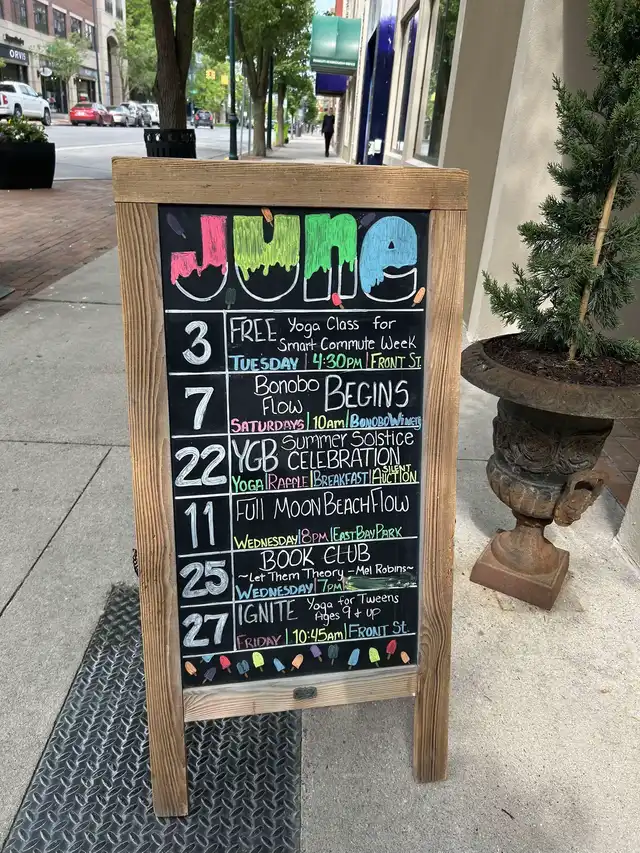 ORVIS
June
3
FREE Yoga Class for
Smart Commute Week
TUESDAY | 4:30PM | FRONT ST.
7
Bonobo
Flow BEGINS
SATURDAYS | 10am | BONOBO WINERY
22
YGB Summer Solstice
CELEBRATION
YOGA | RAFFLE | BREAKFAST | SILENT AUCTION
11
FULL MOON BEACH FLOW
WEDNESDAY | 8PM | EAST BAY PARK
25
BOOK CLUB
~Let Them Theory - Mel Robins~
WEDNESDAY | 7PM |
27
IGNITE Yoga for Tweens
Ages 9 & up
FRIDAY | 10:45am | FRONT St.